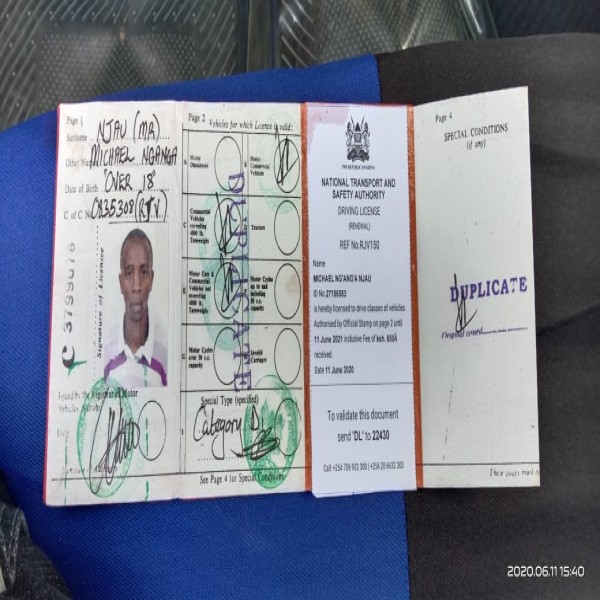 Page 1
Surname NJAU (MR)
Other Names MICHAEL NGANGA
Date of Birth "OVER 18"
C. of C. No. C835308 (R.J.V.)
C 3799078
Signature of Licensee
Issued by the Registrar of Motor
Vehicles, Nairobi
Page 2
Vehicles for which Licence is valid:
Motor Omnibuses
Heavy Commercial Vehicles
Commercial Vehicles exceeding 4000 lb. Tareweight
Tractors
Motor Cars & Commercial Vehicles not exceeding 4000 lb. Tareweight
Motor Cycles up to and including 50 c.c. capacity
Motor Cycles over 50 c.c. capacity
Invalid Carriages
DUPLICATE
Special Type (specified)
Category D
See Page 4 for Special Conditions
THE REPUBLIC OF KENYA
NATIONAL TRANSPORT AND
SAFETY AUTHORITY
DRIVING LICENSE
(RENEWAL)
REF No.RJV150
Name
MICHAEL NG'ANG'A NJAU
ID No.27186583
Is hereby licensed to drive classes of vehicles.
Authorised by Official Stamp on page 2 until
11 June 2021 inclusive Fee of ksh. 650Â
received.
Date 11 June 2020
To validate this document
send 'DL' to 22430
Call +254 709 932 300 | +254 20 6632 300
Page 4
SPECIAL CONDITIONS
(if any)
DUPLICATE
2020.06.11 15:40